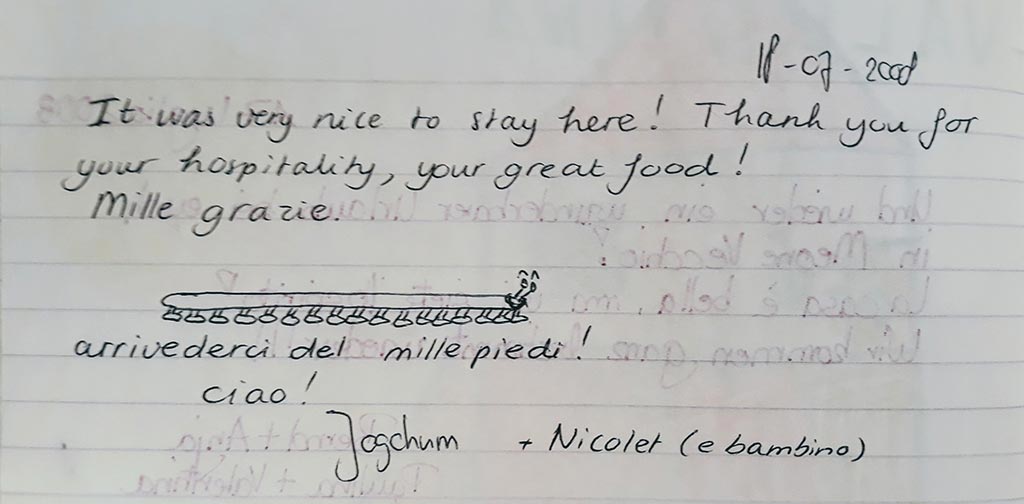 18-07-2008
It was very nice to stay here! Thank you for
your hospitality, your great food!
Mille grazie.
arrivederci del mille piedi!
ciao!
Jogchum + Nicolet (e bambino)